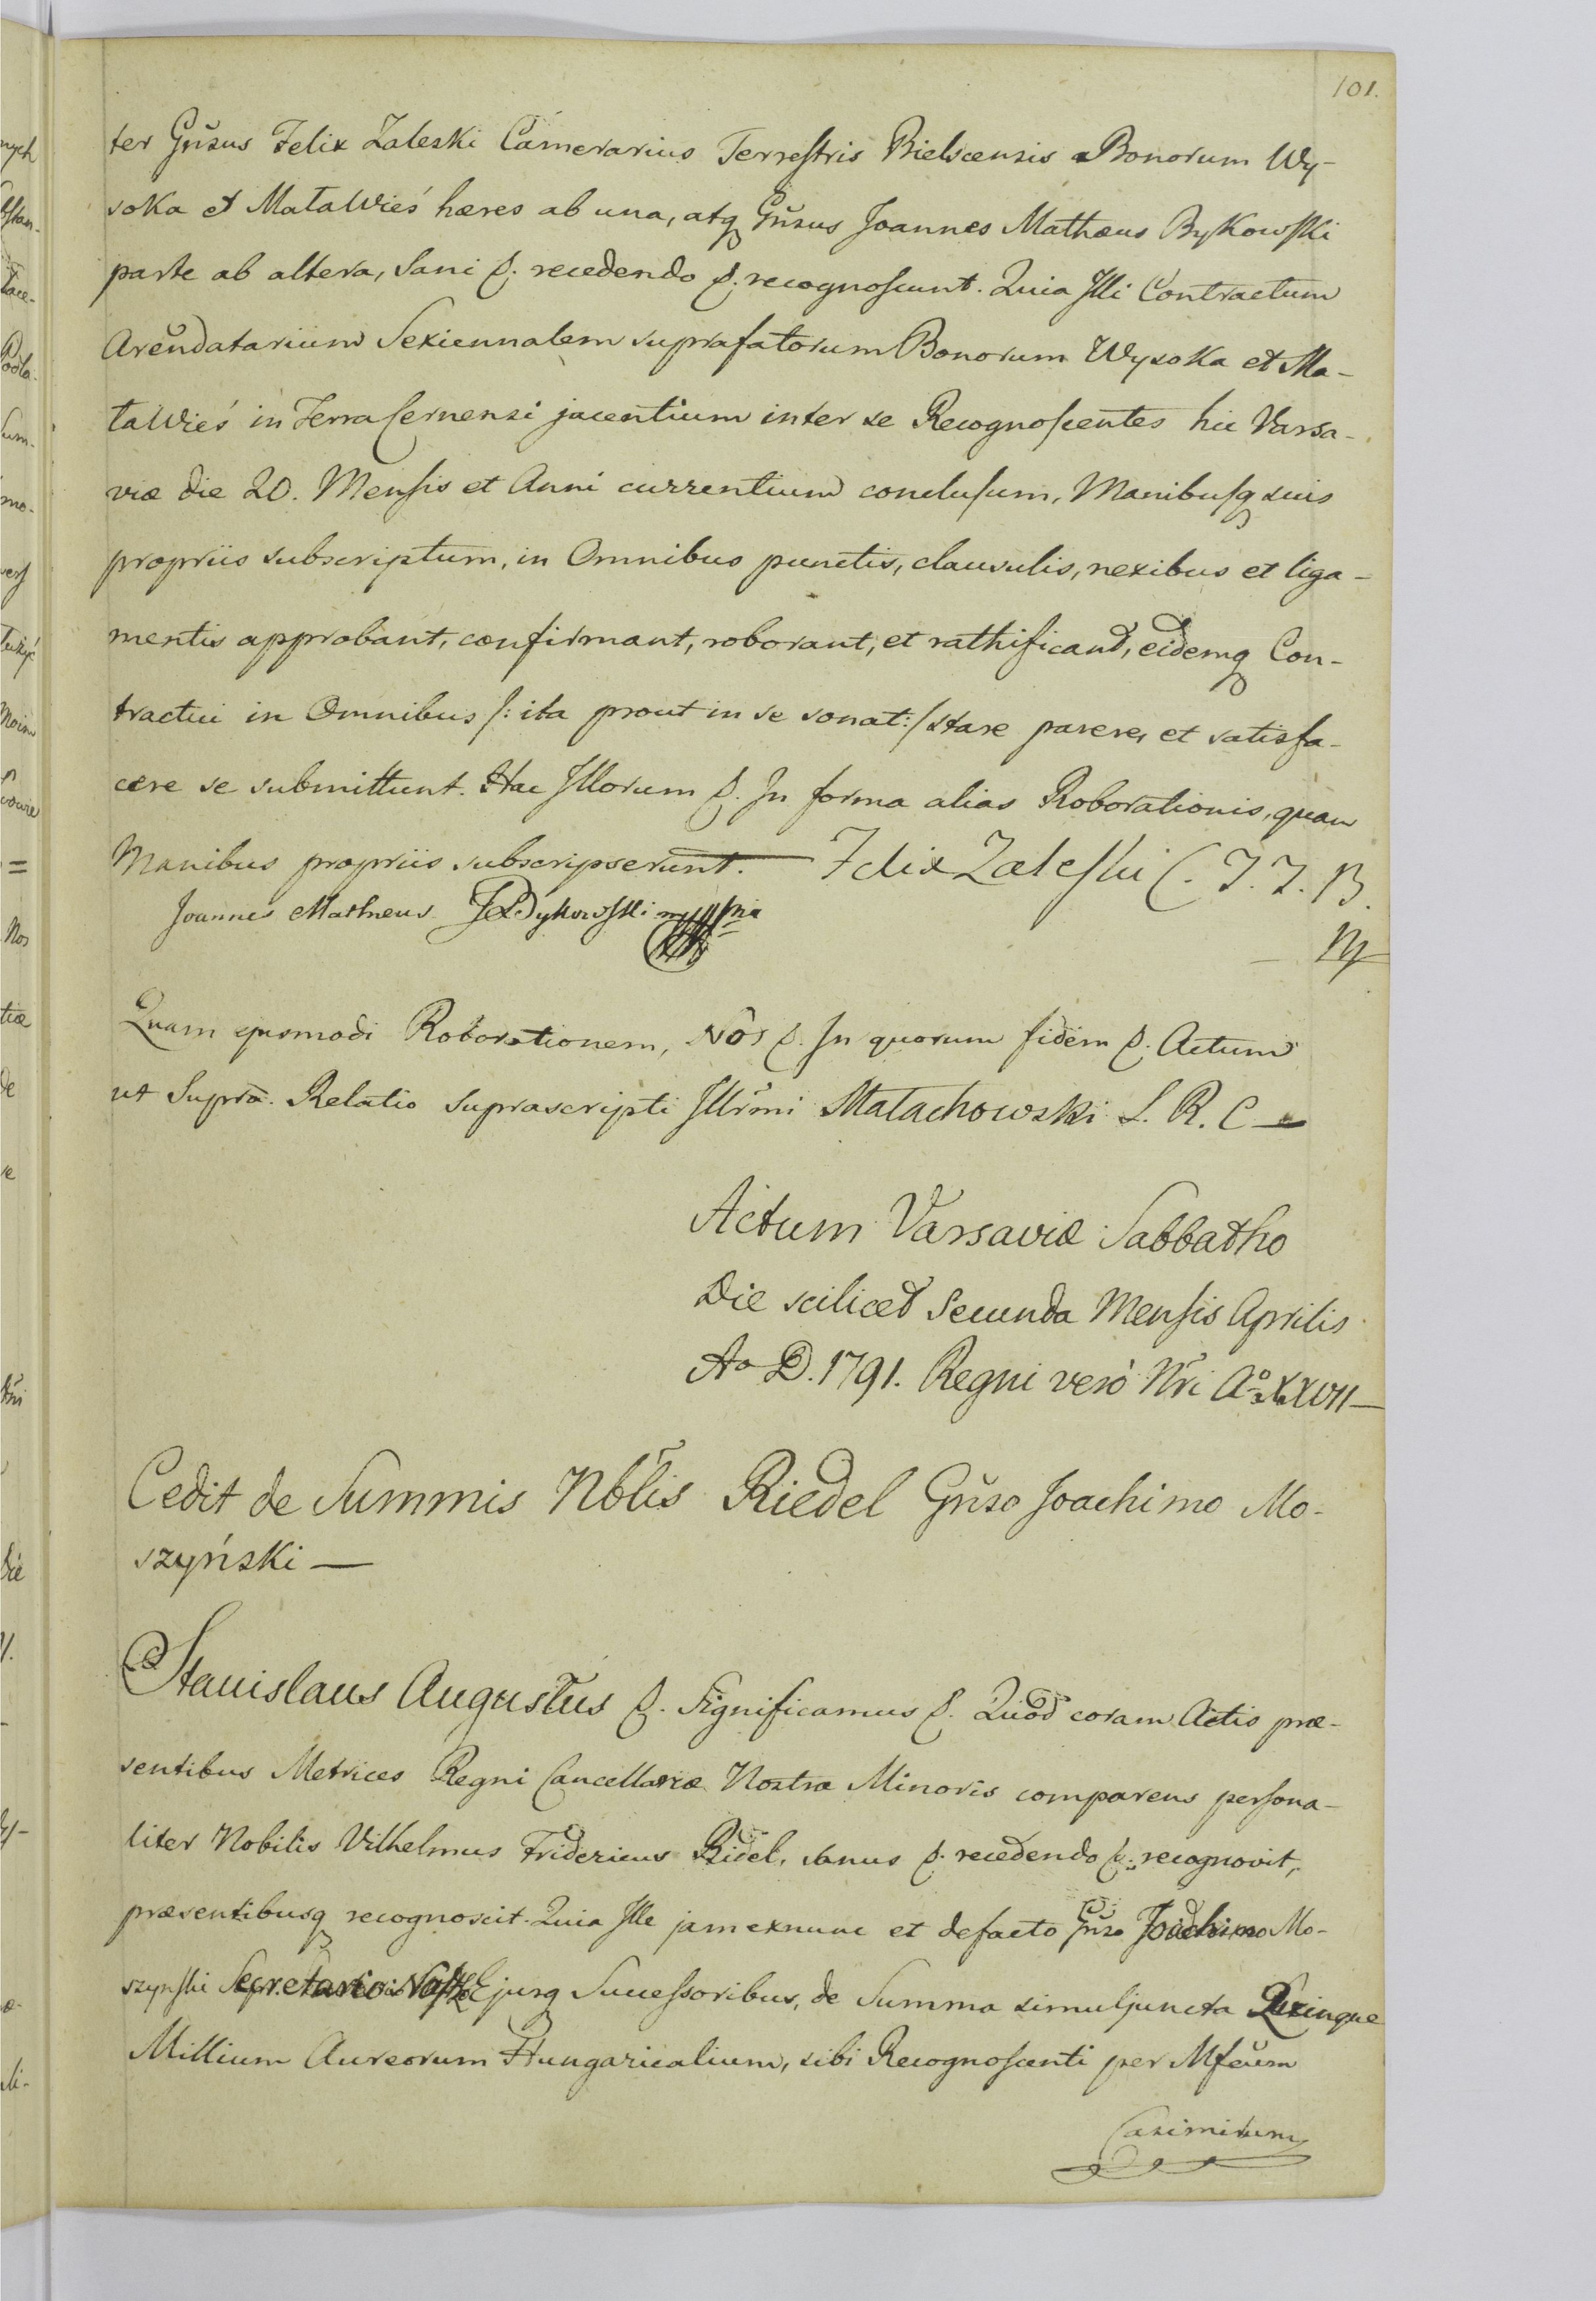 101.
ter Gn̄sus Felix Zaleski Camerarius Terrestris Bielscensis Bonorum Wy-
soka et Mała Wieś hæres ab una, atq Gn̄sus Joannes Mathæus Bykowski
parte ab altera, Sani p. recedendo p. recognoscunt. Quia Illi Contractum
Arendatarium Sexiennalem suprafatorum Bonorum Wysoka et Ma-
ła Wieś in Terra Cernensi jacentium inter se Recognoscentes hic Varsa-
viæ die 20. Mensis et Anni currentium conclusum, Manibusq suis
propriis subscriptum, in Omnibus punctis, clausulis, nexibus et liga-
mentis approbant, confirmant, roborant, et rathificant, eidemq Con-
tractui in Omnibus /: ita prout in se sonat :/ stare parere, et satisfa-
cere se submittunt. Hac Illorum p. In forma alias Roborationis, quam
Manibus propriis subscripserunt. — Felix Zaleski C. Z. Z. B.
Joannes Matheus Bykowski mppria
Mp
Quam ejusmodi Roborationem, Nos p. In quorum fidem p. Actum
ut Supra. Relatio suprascripti Illr̄mi Małachowski S. R. C —
Actum Varsaviæ Sabbatho
Die scilicet Secunda Mensis Aprilis
Ao D. 1791. Regni vero Nr̄i Ao XXVII —
Cedit de Summis Nb̄lis Riedel Gn̄so Joachimo Mo-
szyński —
Stanislaus Augustus p. Significamus p. Quod coram Actis præ-
sentibus Metrices Regni Cancellariæ Nostræ Minoris comparens persona-
liter Nobilis Vilhelmus Fridericus Ridel, sanus p. recedendo p. recognovit,
præsentibusq recognoscit. Quia Ille jam exnunc et defacto Gn̄so Joachimo Mo-
szyński Secretario Ejusq Successoribus, de Summa simuljuncta Quinque
Millium Aureorum Hungaricalium, sibi Recognoscenti per Mfcum
Casimirum